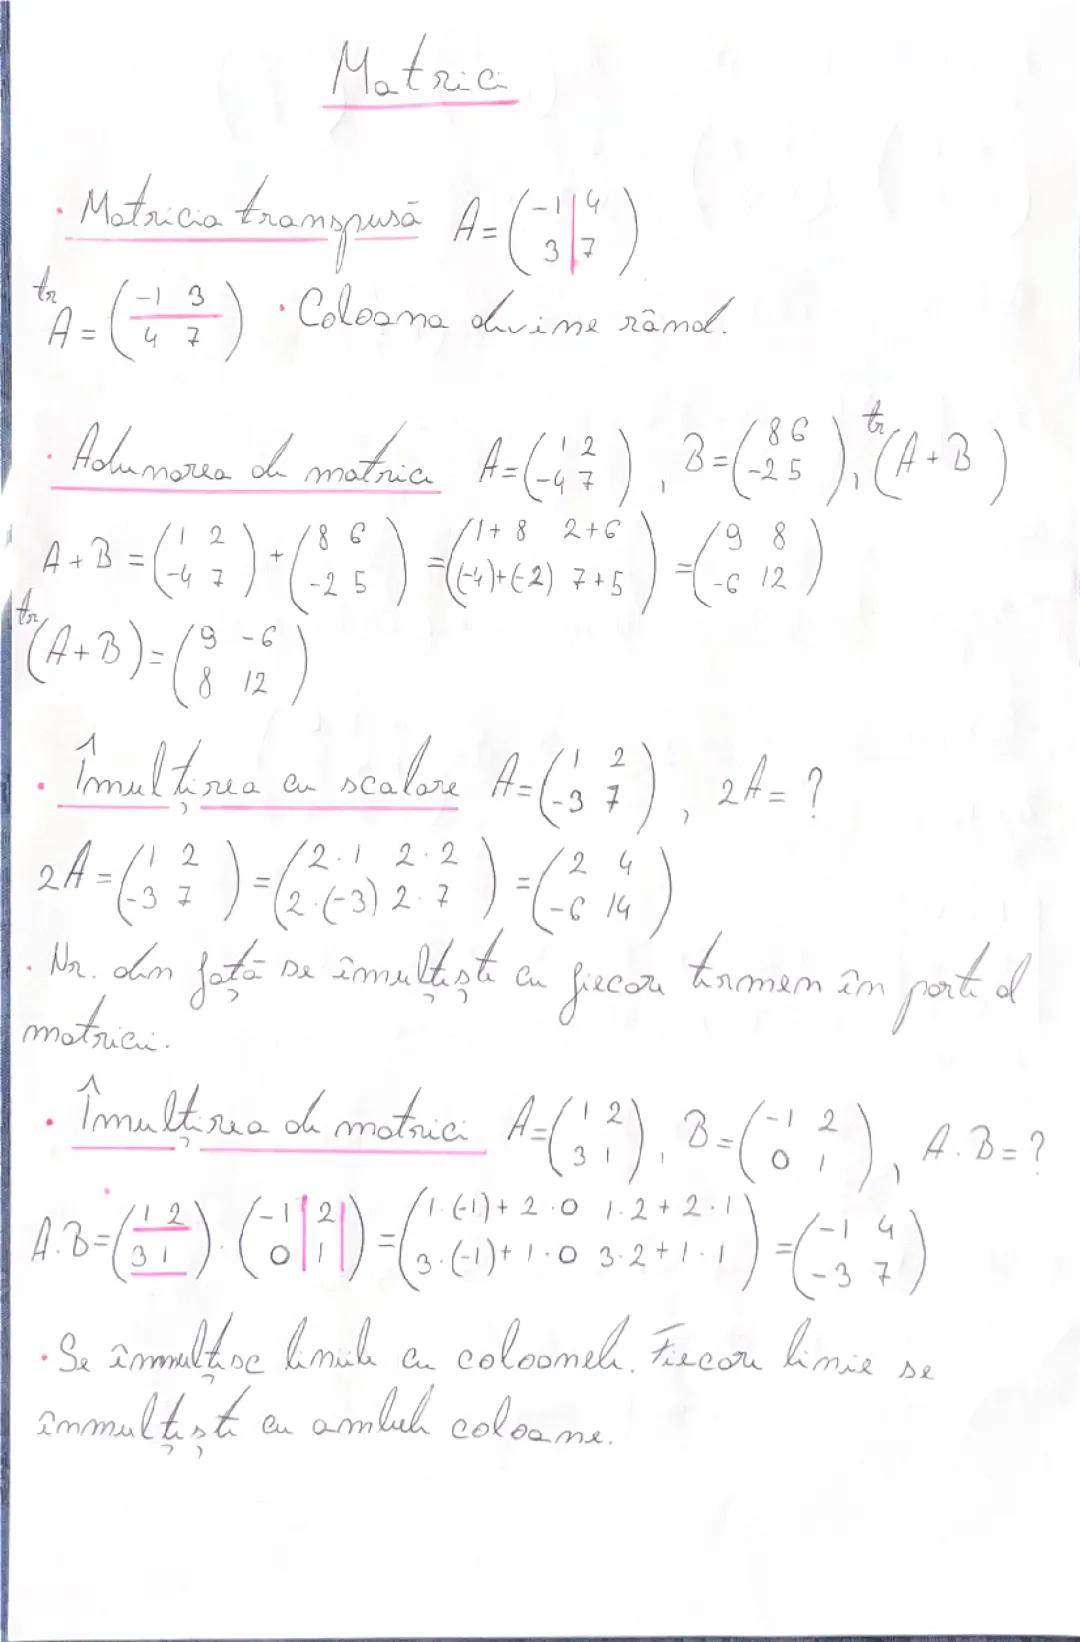 Matrici
· Matricia transpusă A=(-1 4 / 3 7)
trA=(-1 3 / 4 7) · Coloana devine rând.
· Adunarea de matrici A=(1 2 / -4 7), B=(8 6 / -2 5), tr(A+B)
A+B=(1 2 / -4 7)+(8 6 / -2 5)=(1+8 2+6 / (-4)+(-2) 7+5)=(9 8 / -6 12)
tr(A+B)=(9 -6 / 8 12)
· Îmulțirea cu scalare A=(1 2 / -3 7), 2A=?
2A=(1 2 / -3 7)=(2·1 2·2 / 2·(-3) 2·7)=(2 4 / -6 14)
· Nr. din față se îmulțește cu fiecare termen în parte al
matricii.
· Îmulțirea de matrici A=(1 2 / 3 1), B=(-1 2 / 0 1), A·B=?
A·B=(1 2 / 3 1)·(-1 2 / 0 1)=(1·(-1)+2·0 1·2+2·1 / 3·(-1)+1·0 3·2+1·1)=(-1 4 / -3 7)
· Se înmulțesc liniile cu coloanele. Fiecare linie se
înmulțește cu ambele coloane.